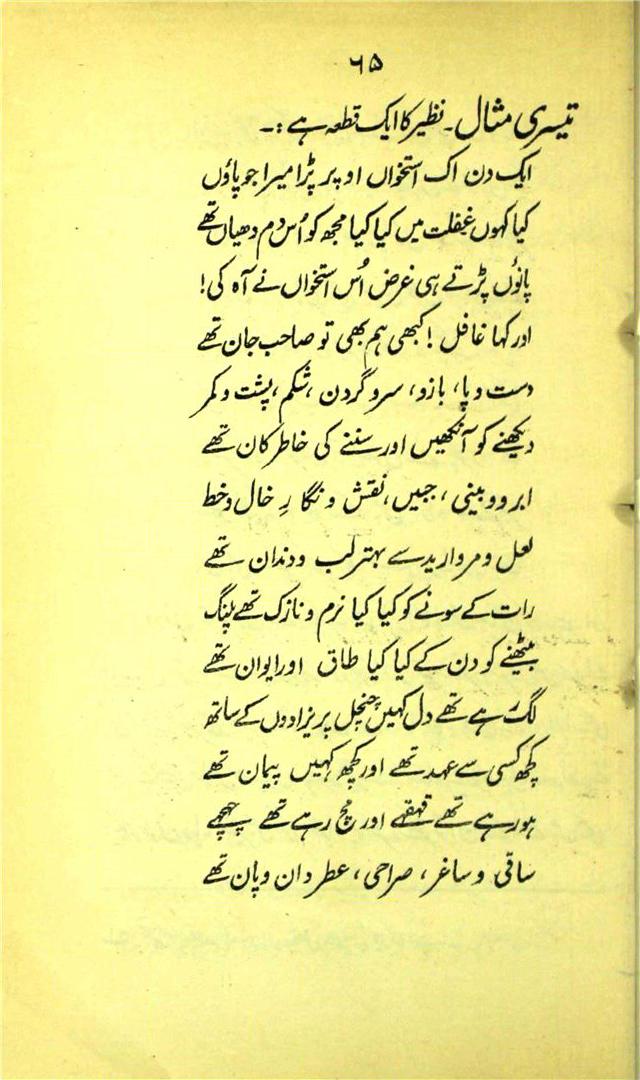 ۶۵
تیسری مثال۔ نظیر کا ایک قطعہ ہے :۔
ایک دن اک استخواں اوپر پڑا میرا جو پاؤں
کیا کہوں غفلت میں کیا کیا مجھ کو اُس دم دھیاں تھے
پانوُں پڑتے ہی غرض اُس استخواں نے آہ کی!
اور کہا غافل! کبھی ہم بھی تو صاحب جان تھے
دست و پا، بازو، سر و گردن، شکم، پشت و کمر
دیکھنے کو آنکھیں اور سننے کی خاطر کان تھے
ابرو و بینی، جبیں، نقش و نگارِ خال و خط
لعل و مروارید سے بہتر لب و دندان تھے
رات کے سونے کو کیا کیا نرم و نازک تھے پلنگ
بیٹھنے کو دن کے کیا کیا طاق اور ایوان تھے
لگ رہے تھے دل کہیں چنچل پریزادوں کے ساتھ
کچھ کسی سے عہد تھے اور کچھ کہیں پیمان تھے
ہو رہے تھے قہقہے اور مچ رہے تھے چہچہے
ساقی و ساغر، صراحی، عطردان و پان تھے